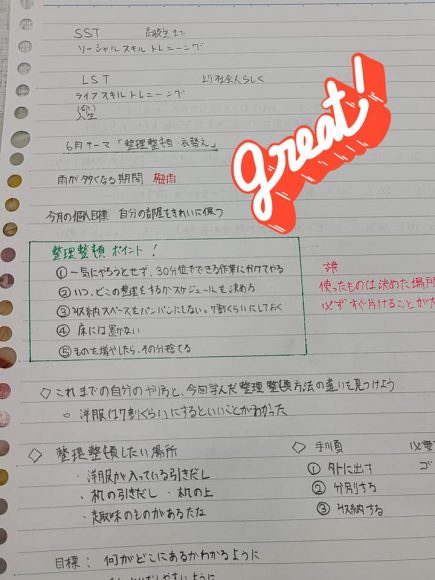 SST 高校生まで
ソーシャルスキルトレーニング
LST より社会人らしく
ライフスキルトレーニング
人生
6月テーマ「整理整頓・衣替え」
雨が多くなる期間 梅雨
今月の個人目標 自分の部屋をきれいに保つ
great!
整理整頓 ポイント!
①一気にやろうとせず、30分位でできる作業に分けてやる
②いつ、どこの整理をするかスケジュールを決める
③収納スペースをパンパンにしない。7割くらいにしておく
④床には置かない
⑤ものを増やしたら、その分捨てる
使ったものは決めた場所
必ずすぐ片けることが
◇これまでの自分のやり方と、今回学んだ整理整頓方法の違いを見つけよう
○洋服は7割ぐらいにするといいことがわかった
◇整理整頓したい場所
・洋服が入っている引きだし
・机の引きだし ・机の上
・趣味のものがあるたな
◇手順 必要
①外に出す ゴ
②分別する
③収納する
目標:何がどこにあるかわかるように